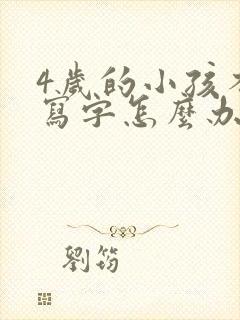 4歲的小孩不
寫字怎麼办
劉筠